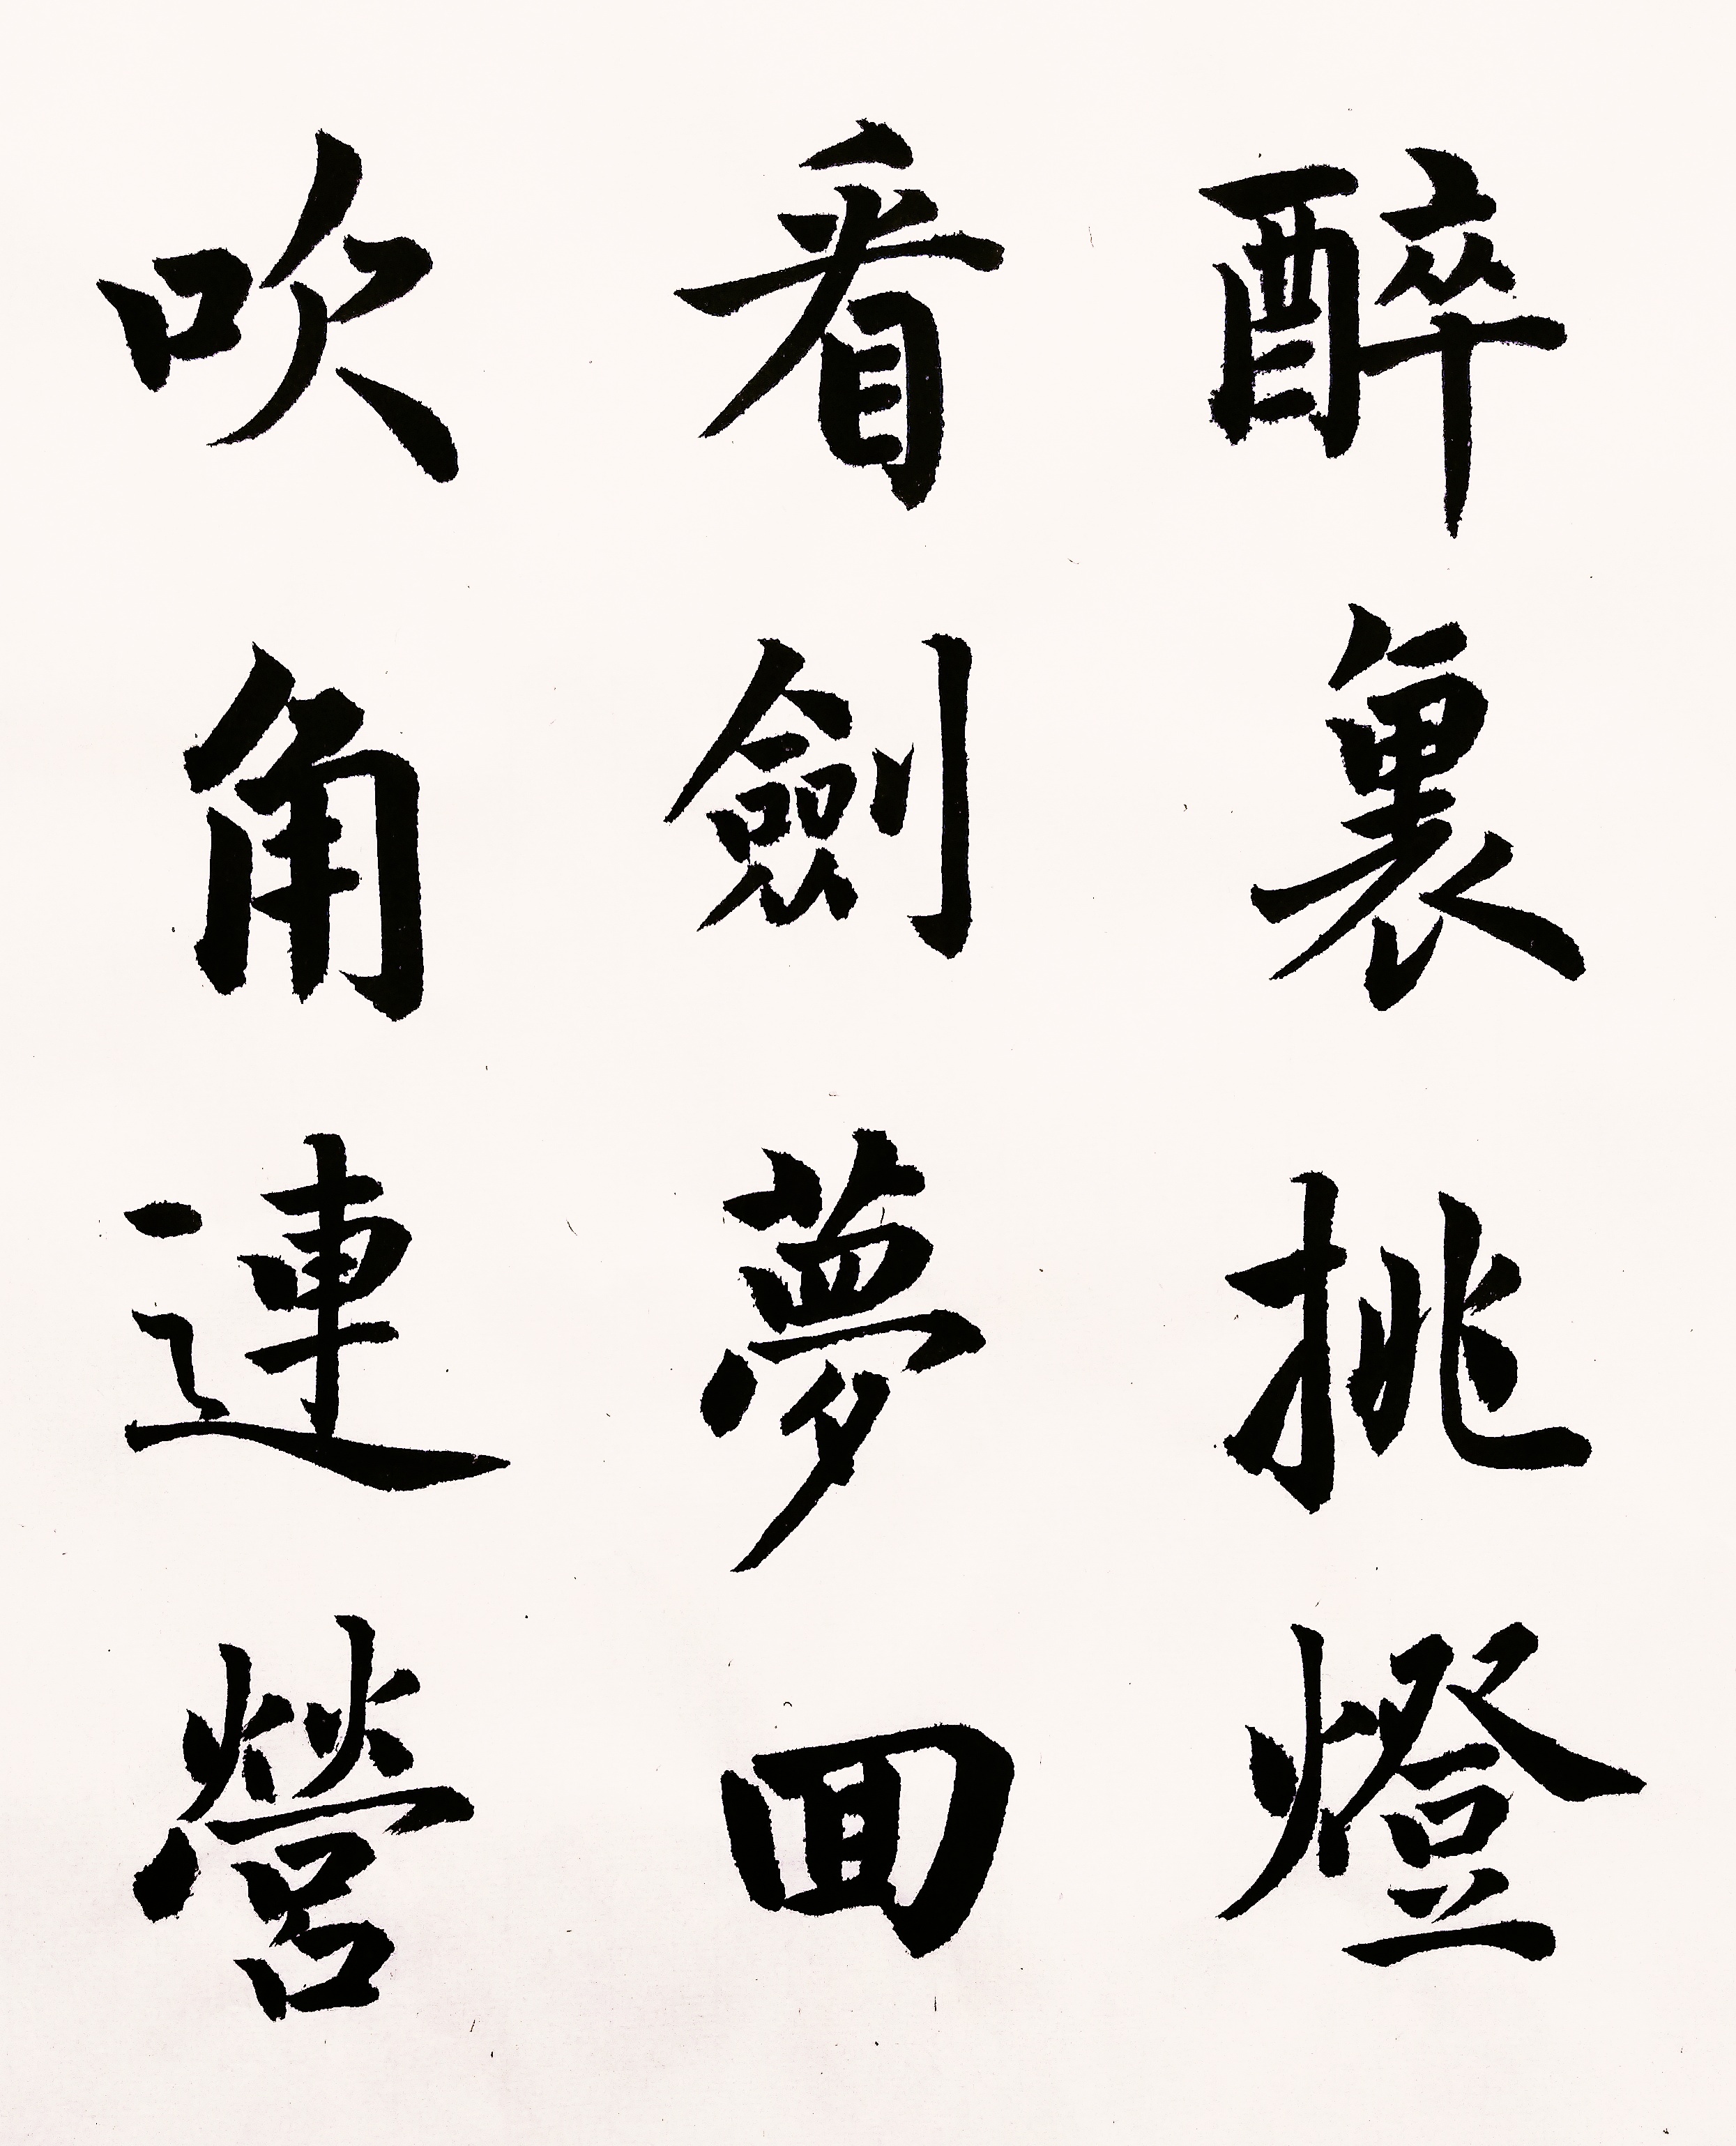 醉裏挑燈
看劍夢回
吹角連營